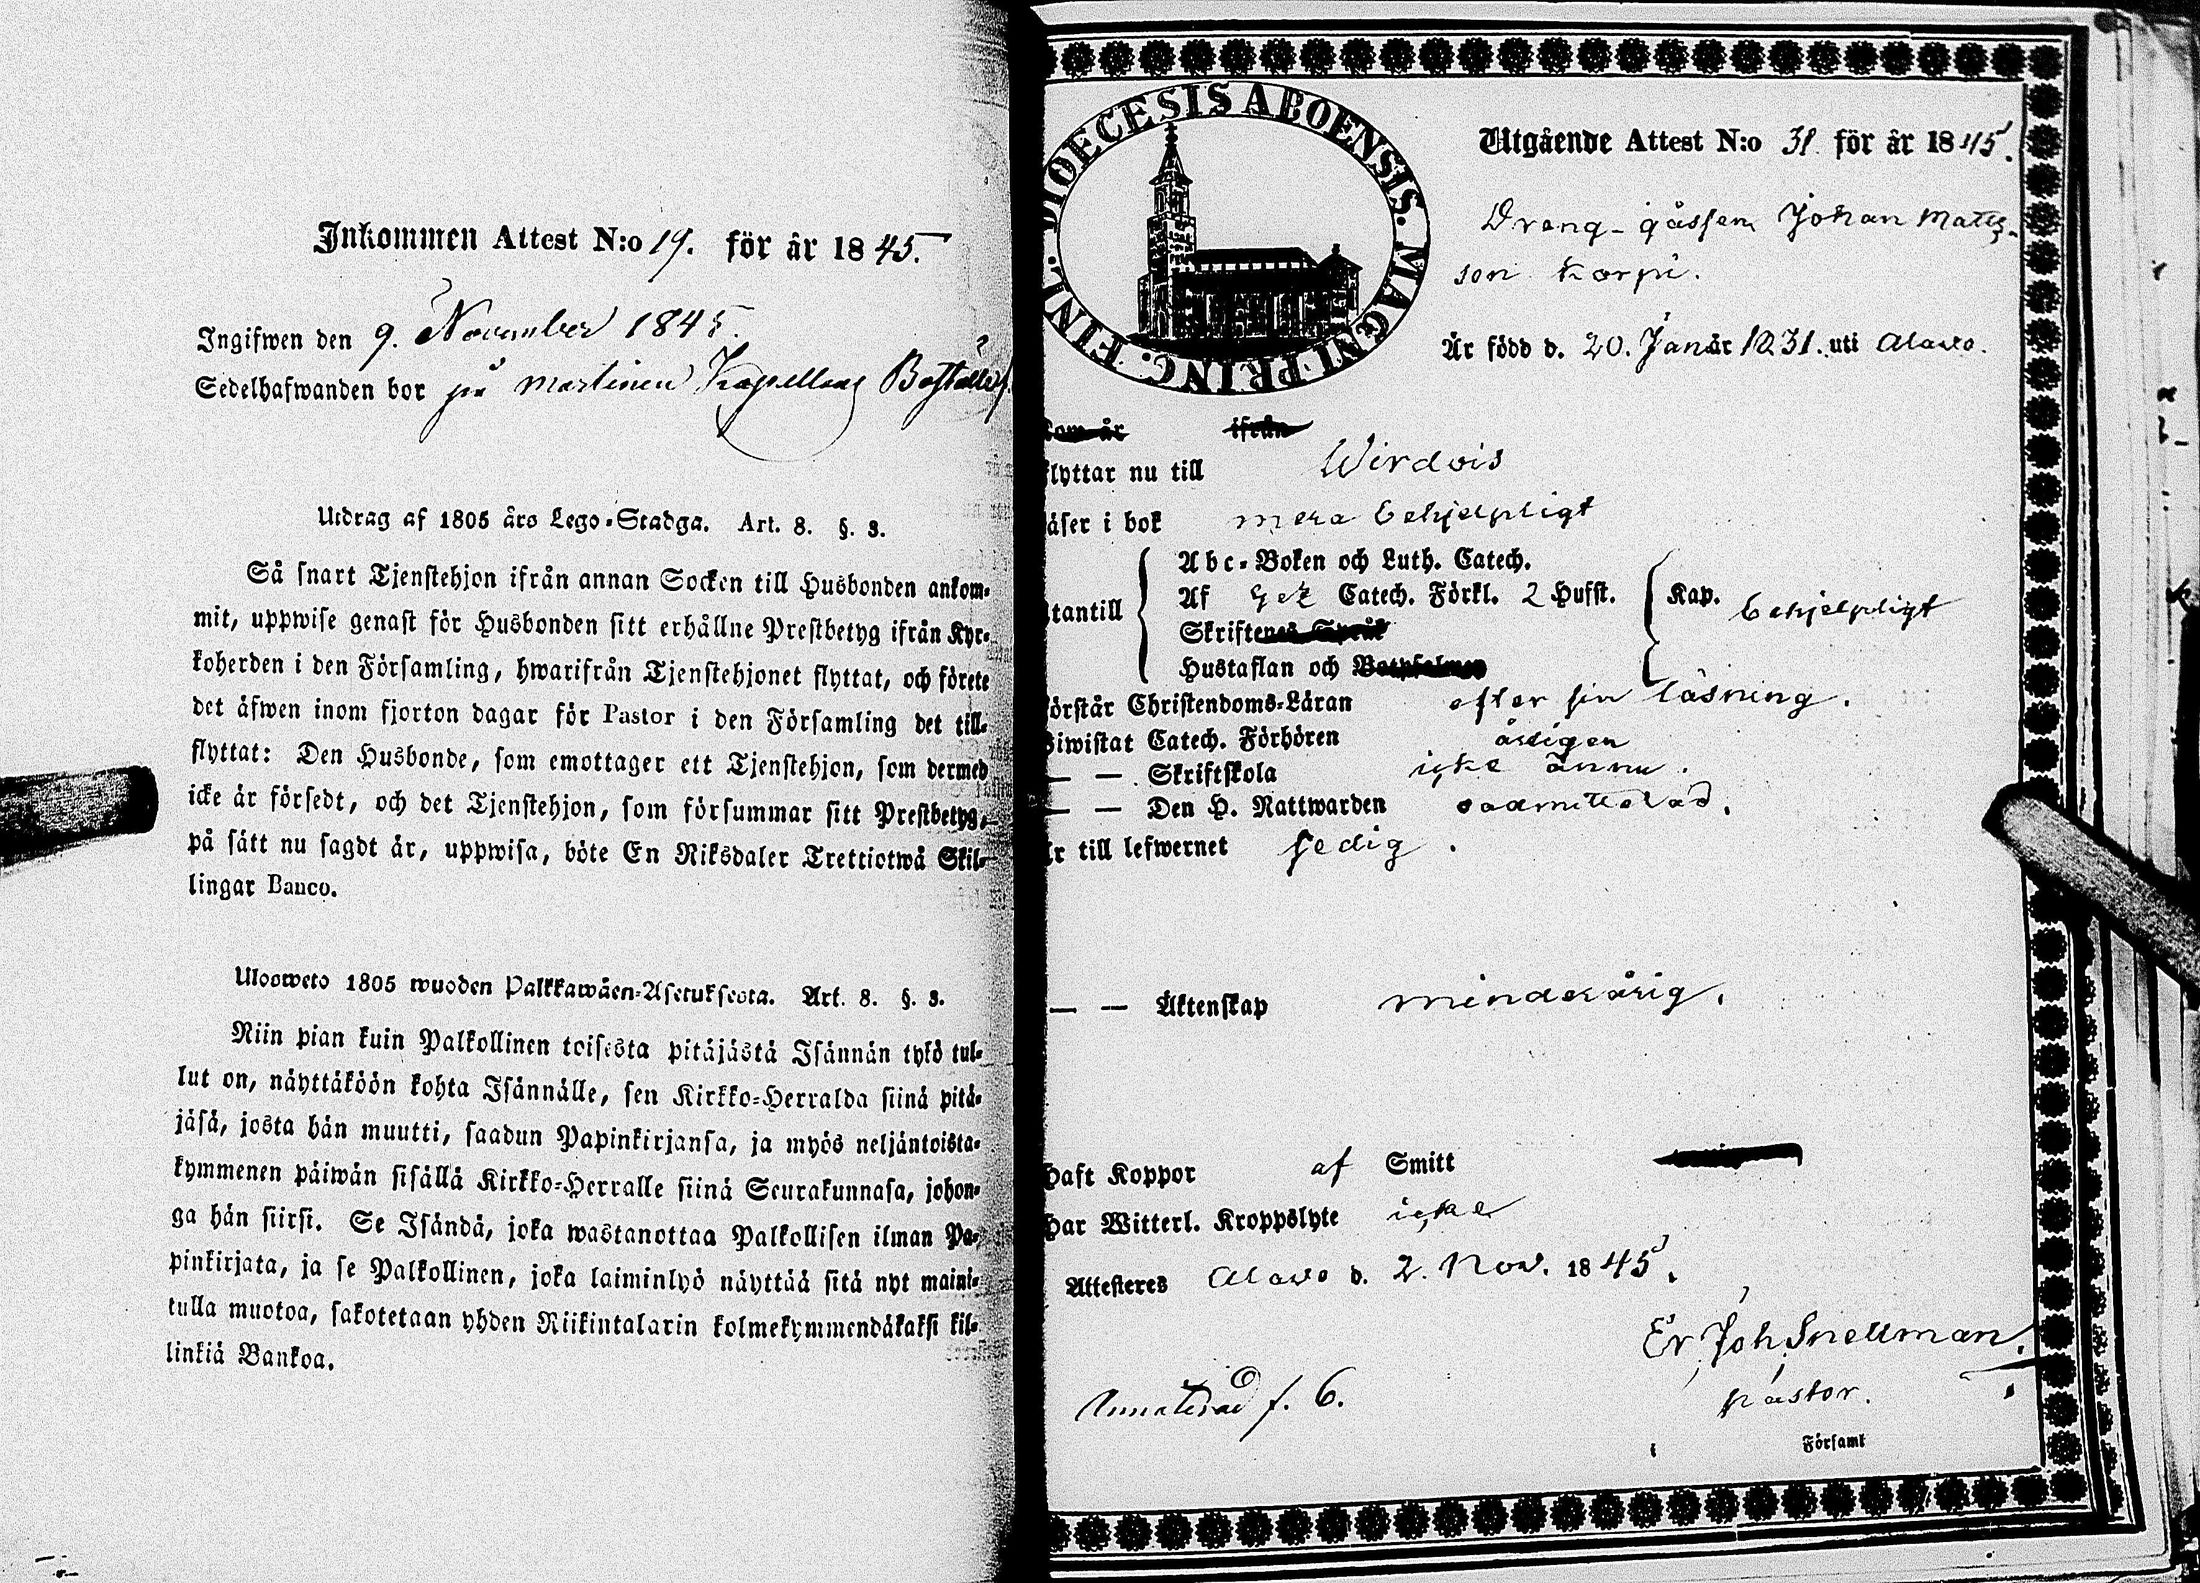 Inkommen Attest N:o 19. för år 1845.
Ingifwen den 9. November 1845.
Sedelhafwanden bor på Martinen Kapellans Boställe
Utdrag af 1805 års Lego-Stadga. Art. 8. §. 3.
Så snart Tjenstehjon ifrån annan Socken till Husbonden ankom-
mit, uppwise genast för Husbonden sitt erhållne Prestbetyg ifrån Kyr-
koherden i den Församling, hwarifrån Tjenstehjonet flyttat, och förete
det äfwen inom fjorton dagar för Pastor i den Församling det till-
flyttat: Den Husbonde, som emottager ett Tjenstehjon, som dermed
icke är försedt, och det Tjenstehjon, som försummar sitt Prestbetyg,
på sätt nu sagdt är, uppwisa, böte En Riksdaler Trettiotwå Skil-
lingar Banco.
Ulosweto 1805 wuoden Palkkawäen-Asetuksesta. Art. 8. §. 3.
Niin pian kuin Palkollinen toisesta pitäjästä Isännän tykö tul-
lut on, näyttäköön kohta Isännälle, sen Kirkko-Herralda siinä pitä-
jäsä, josta hän muutti, saadun Papinkirjansa, ja myös neljäntoista-
kymmenen päiwän sisällä Kirkko-Herralle siinä Seurakunnasa, johon-
ga hän siirsi. Se Isändä, joka wastanottaa Palkollisen ilman Pa-
pinkirjata, ja se Palkollinen, joka laiminlyö näyttää sitä nyt maini-
tulla muotoa, sakotetaan yhden Riikintalarin kolmekymmendäkaksi kil-
linkiä Bankoa.
FINL. DIOECESIS ABOENSIS. MAGNI PRINC.
Utgående Attest N:o 31. för år 1845.
Dreng-gåssen Johan Matts-
son Korpi.
Är född d. 20. Januar 1831. uti Alavo.
Kom år ifrån
flyttar nu till Wirdois
läser i bok mera behjelpligt
Abc-Boken och Luth. Catech.
Utantill Af Gez Catech. Förkl. 2 Hufst. Kap. behjelpligt
Skriftenes Språk
Hustaflan och Botpsalmer
förstår Christendoms-Läran efter sin läsning.
Biwistat Catech. Förhören årligen
— — Skriftskola icke ännu.
— — Den H. Nattwarden oadmitterad.
Är till lefwernet sedig.
— — Äktenskap minderårig.
Haft Koppor af Smitt
Har Witterl. Kroppslyte icke
Attesteres Alavo d. 2. Nov. 1845.
Er. Joh Snellman.
Pastor.
Annoterad f. 6.
Församl